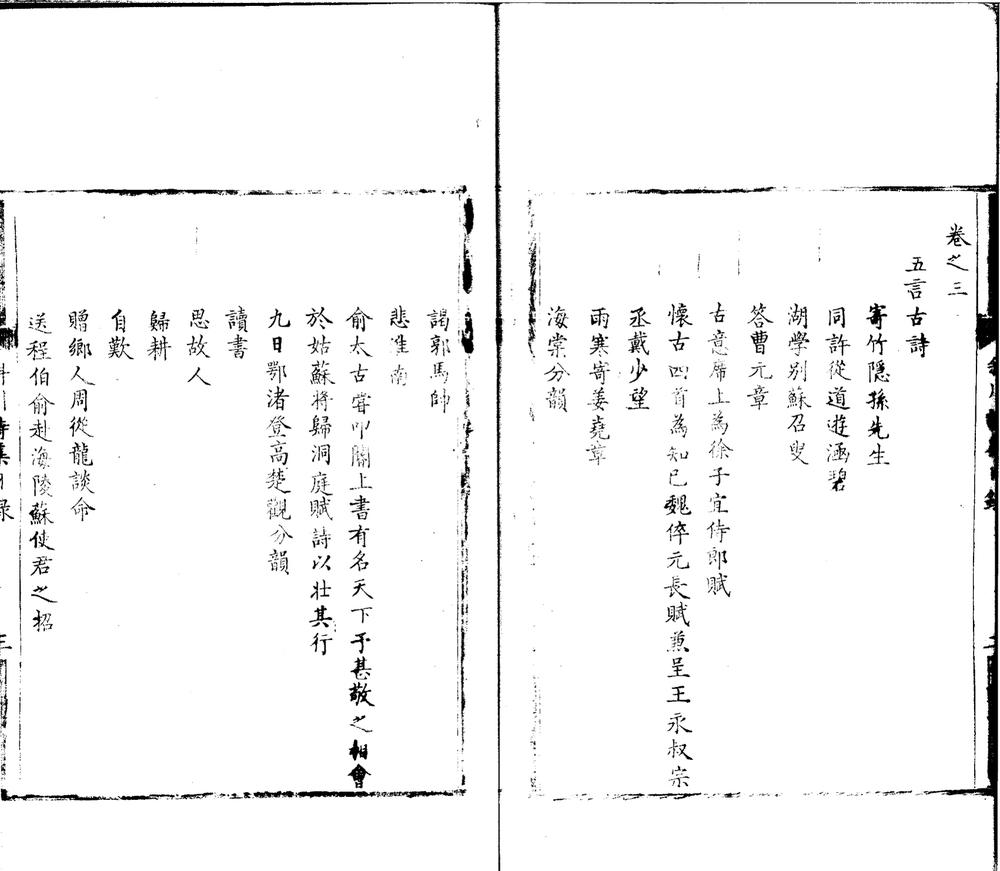 卷之三
五言古詩
寄竹隱孫先生
同許從道遊涵碧
湖學別蘇召叟
答曹元章
古意席上為徐子宜侍郎賦
懷古四首為知己魏倅元長賦兼呈王永叔宗
丞戴少望
雨寒寄姜堯章
海棠分韻
謁郭馬帥
悲淮南
俞太古嘗叩關上書有名天下予甚敬之相會
於姑蘇將歸洞庭賦詩以壯其行
九日鄂渚登高楚觀分韻
讀書
思故人
歸耕
自歎
贈鄉人周從龍談命
送程伯俞赴海陵蘇使君之招
詩集目錄
三